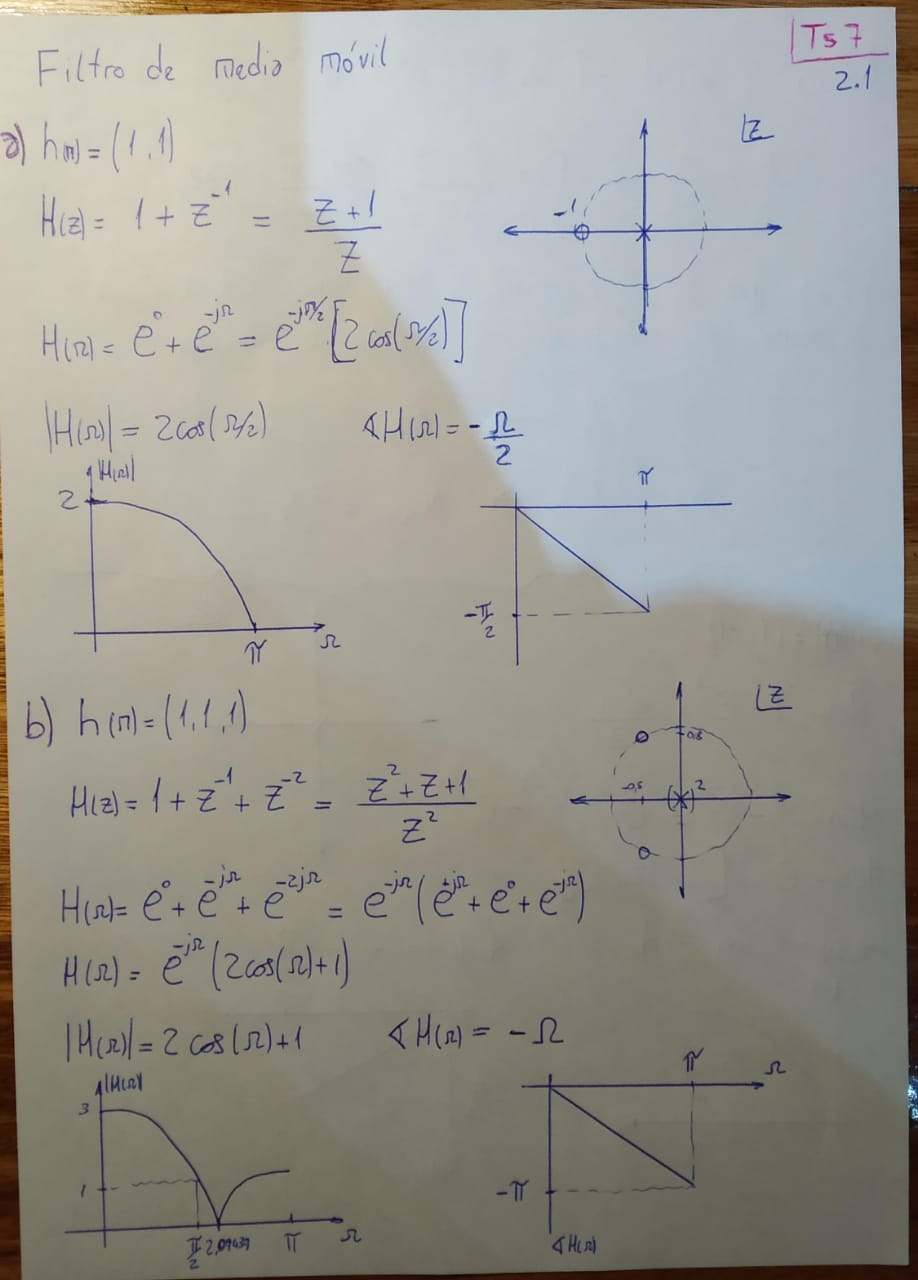 Filtro de media móvil
Ts 7
2.1
a) h(n) = (1,1)
z
H(z) = 1 + z^-1 = (z+1)/z
-1
H(Ω) = e^0 + e^-jΩ = e^-jΩ/2 [2 cos(Ω/2)]
|H(Ω)| = 2cos(Ω/2) ∢H(Ω) = -Ω/2
|H(Ω)|
2
π Ω
π
-π/2
b) h(n) = (1,1,1)
z
0,8
-0,5 ( )^2
H(z) = 1 + z^-1 + z^-2 = (z^2+z+1)/z^2
H(Ω) = e^0 + e^-jΩ + e^-2jΩ = e^-jΩ (e^+jΩ + e^0 + e^-jΩ)
H(Ω) = e^-jΩ (2cos(Ω)+1)
|H(Ω)| = 2 cos(Ω)+1 ∢H(Ω) = -Ω
|H(Ω)|
3
1
π/2 2,09439 π Ω
π Ω
-π
∢H(Ω)